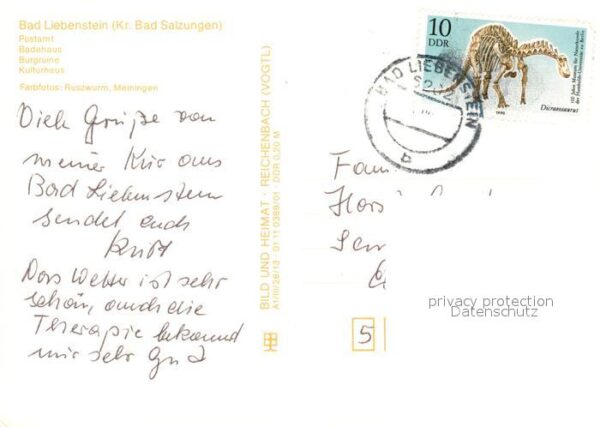 Bad Liebenstein (Kr. Bad Salzungen)
Postamt
Badehaus
Burgruine
Kulturhaus
Farbfotos: Ruszwurm, Meiningen
Viele Grüße von
meiner Kur aus
Bad Liebenstein
sendet euch
Das Wetter ist sehr
schön, auch die
Therapie bekommt
mir sehr gut
BILD UND HEIMAT · REICHENBACH (VOGTL)
A1/III/26/13 · 01 11 0389/01 · DDR 0,20 M
10
DDR
100 Jahre Museum für Naturkunde
der Humboldt-Universität zu Berlin
Dicraeosaurus
1990
BAD LIEBENSTEIN
a
Fam
Hors
privacy protection
Datenschutz
5